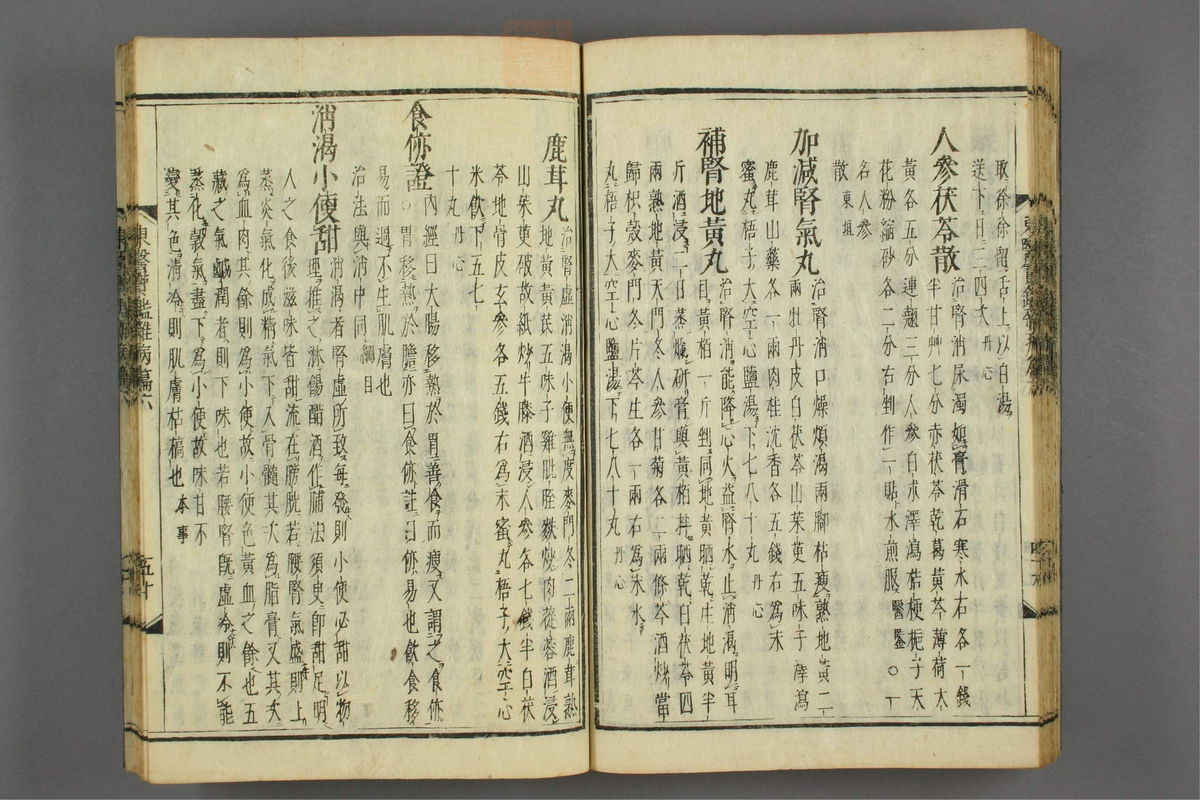 取徐徐留舌上以白湯
送下日三四次丹心
人參茯苓散治腎消尿濁如膏滑石寒水石各一錢
半甘艸七分赤茯苓乾葛黃芩薄荷大
黃各五分連翹三分人參白朮澤瀉桔梗梔子天
花粉縮砂各二分右剉作一貼水煎服醫鑑○一
名人參
散東垣
加減腎氣丸治腎消口燥煩渴兩腳枯瘦熟地黃二
兩牡丹皮白茯苓山茱萸五味子澤瀉
鹿茸山藥各一兩肉桂沈香各五錢右為末
蜜丸梧子大空心鹽湯下七八十丸丹心
補腎地黃丸治腎消能降心火益腎水止消渴明耳
目黃栢一斤剉同地黃晒乾生地黃半
斤酒浸二日蒸爛研膏與黃栢拌晒乾白茯苓四
兩熟地黃天門冬人參甘菊各二兩條芩酒炒當
歸枳殼麥門冬片芩生各一兩右為末水
丸梧子大空心鹽湯下七八十丸丹心
鹿茸丸治腎虛消渴小便無度麥門冬二兩鹿茸熟
地黃黃芪五味子雞肶胵麩炒肉蓯蓉酒浸
山茱萸破故紙炒牛膝酒浸人參各七錢半白茯
苓地骨皮玄參各五錢右為末蜜丸梧子大空心
米飲下五七
十丸丹心
食㑊證內經曰大腸移熱於胃善食而瘦又謂之食㑊
○胃移熱於膽亦曰食㑊註曰㑊易也飲食移
易而過不生肌膚也
治法與消中同綱目
消渴小便甜消渴者腎虛所致每發則小便必甜以物
理推之淋餳醋酒作脯法須臾即甜足明
人之食後滋味皆甜流在膀胱若腰腎氣盛則上
蒸炎氣化成精氣下入骨髓其次為脂膏又其次
為血肉其餘則為小便故小便色黃血之餘也五
藏之氣鹹潤者則下味也若腰腎旣虛冷則不能
蒸化穀氣盡下為小便故味甘不
變其色淸冷則肌膚枯槁也本事
東醫寶鑑雜病篇六